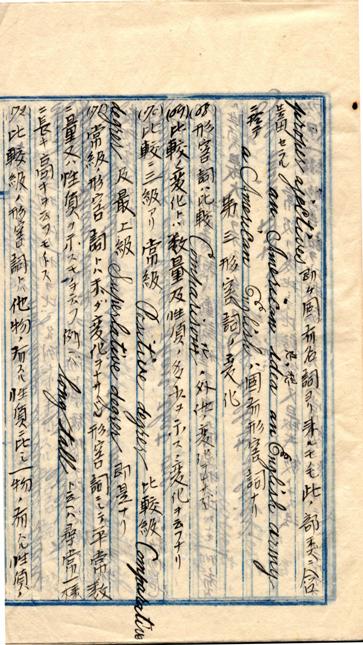 proper ajectives 即チ固有名詞ヨリ来ルモ此部類ニ合
蓄セラル an American idea an English army
等 a American English ハ固有形容詞ナリ
第三 形容詞ノ変化
(68) 形容詞ハ比較 Comparison ノ外他ノ変化
(69) 比較ノ変化トハ数量及性質ノ多少ヲ示ス変化ヲ云フナリ
(70) 比較ニ三級アリ 常級 Positive degree 比較級 Comparative
degree 及最上級 Superlative degree 即是ナリ
(71) 常級形容詞トハ未ダ変化ヲナサヾル形容詞ニシテ平常数
量又ハ性質ヲ示スモノヲ云フ例ヘバ long tall ト云ヘハ尋常一様
ニ長キ高キヲ云フ
(72) 比較級ノ形容詞トハ他物ノ有スル性質ニ比シ一物ノ有スル性質ノ